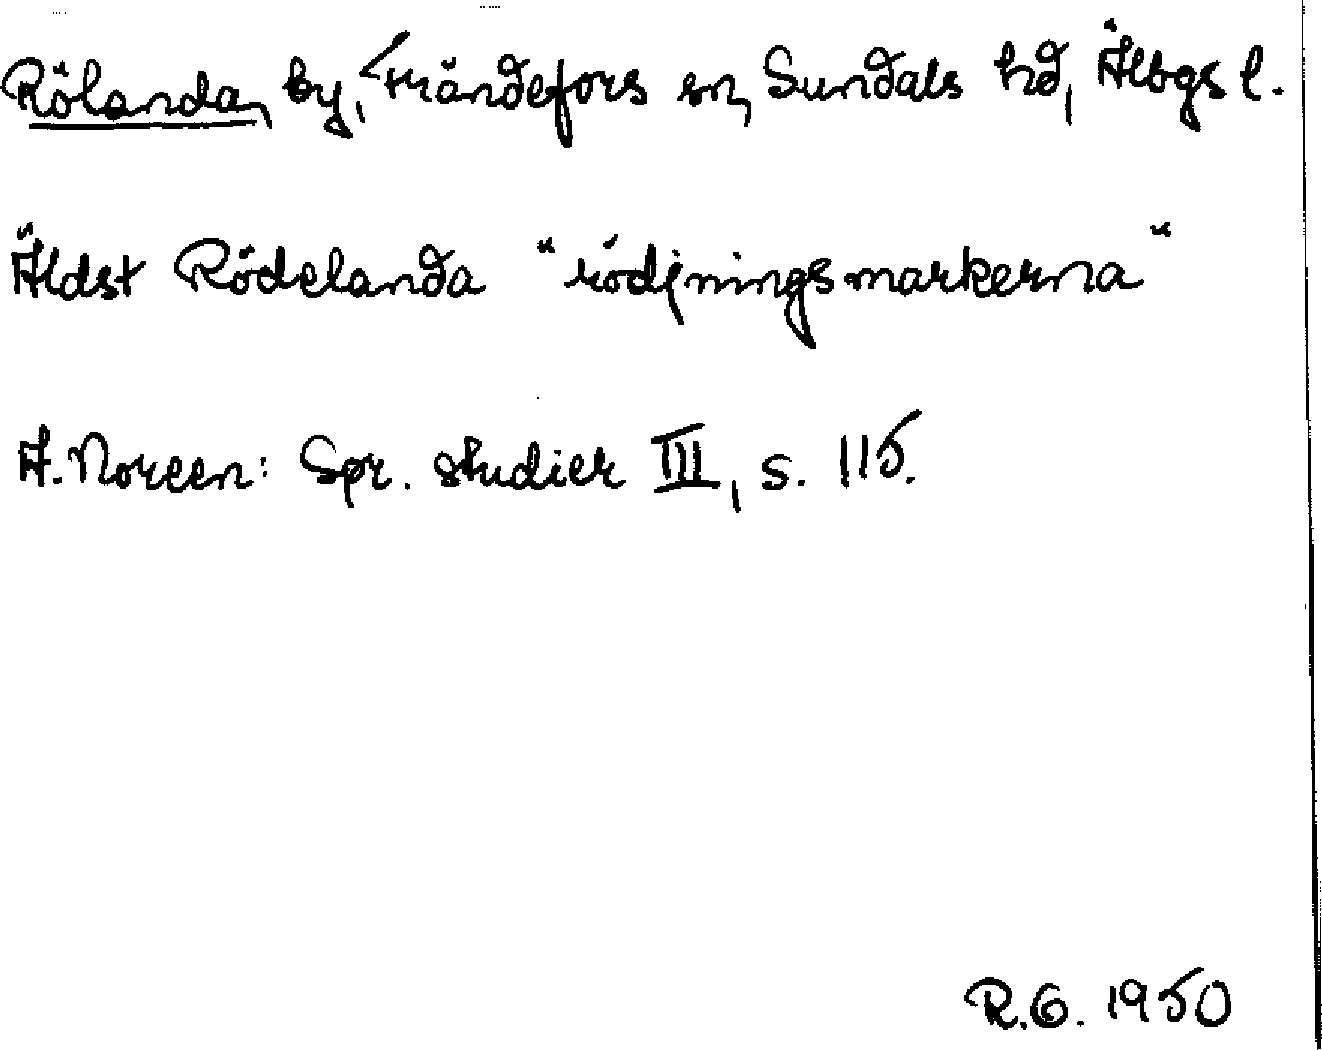 Rölanda, by, Frändefors sn, Sundals hd, Älvbgs l.
Äldst Rödelanda "rödjningsmarkerna"
A. Noreen: Spr. studier III, s. 115.
R.G. 1950